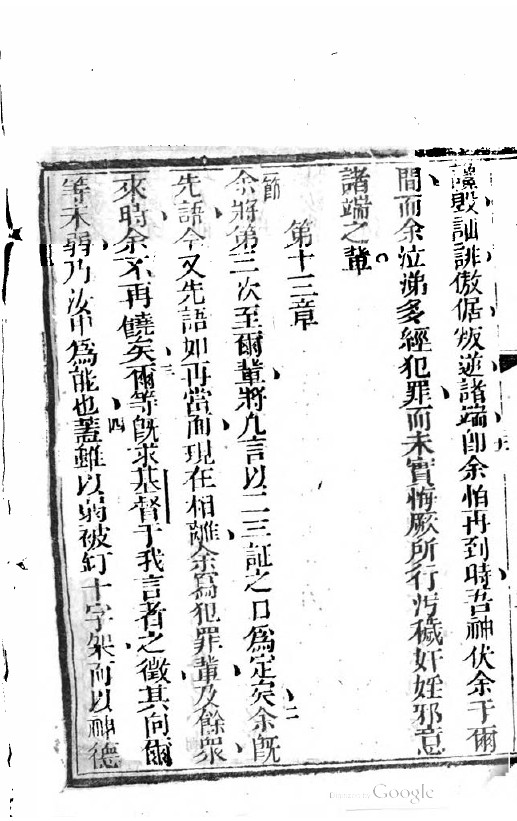 譭訕誹傲倨叛逆諸端即余怕再到時吾神伏余于爾
間而余泣涕多經犯罪而未實悔厥所行污穢奸婬邪意
諸端之輩
第十三章
節
余將第三次至爾輩將凡言以二三証之口為定矣二余既
先語今又先語如再當面現在相離余寫犯罪輩及餘眾
來時余不再饒矣三爾等既求基督于我言者之徵其向爾
等未弱乃汝中為能也四蓋雖以弱被釘十字架而以神德
Digitized by Google